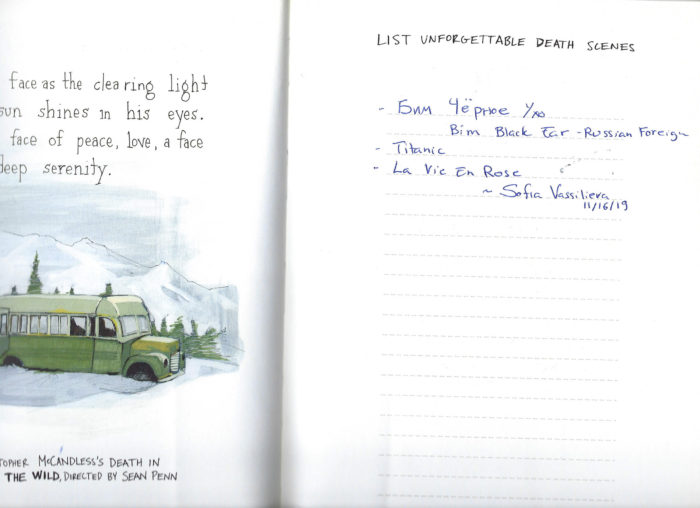 face as the clearing light
sun shines in his eyes.
face of peace, love, a face
deep serenity.
TOPHER McCANDLESS'S DEATH IN
THE WILD, DIRECTED BY SEAN PENN
LIST UNFORGETTABLE DEATH SCENES
- Бим Чёрное Ухо
Bim Black Ear - Russian Foreign
- Titanic
- La Vie En Rose
~ Sofia Vassilieva
11/16/19